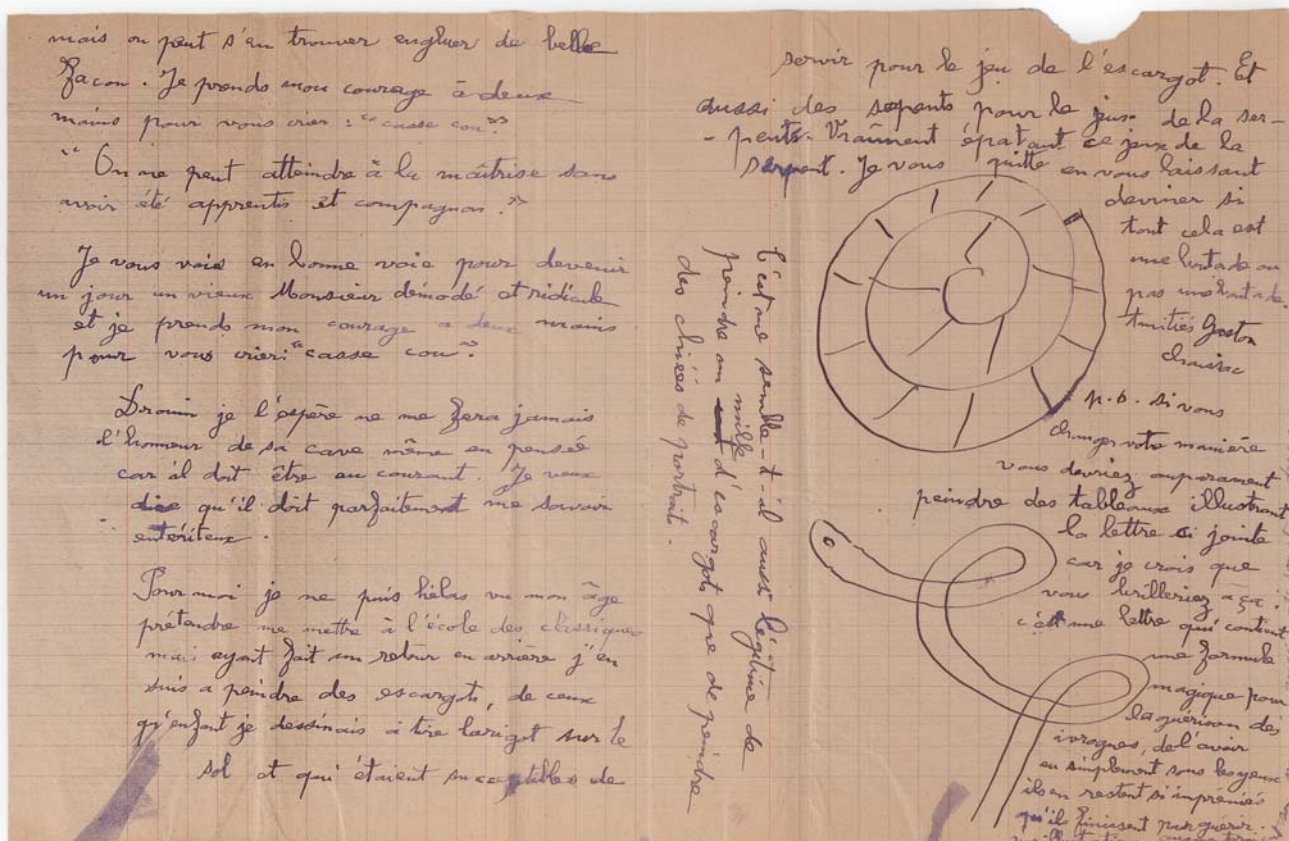 mais on peut s'en trouver engluer de belle
façon. Je prends mon courage à deux
mains pour vous crier : "casse cou"
"On ne peut atteindre à la maîtrise sans
avoir été apprentis et compagnon."
Je vous vois en bonne voie pour devenir
un jour un vieux Monsieur démodé et ridicule
et je prends mon courage a deux mains
pour vous crier: "casse cou".
Drouin je l'espère ne me fera jamais
l'honneur de sa cave même en pensée
car il doit être au courant. Je veux
dire qu'il doit parfaitement me savoir
entériteux.
Pour moi je ne puis hélas vu mon âge
prétendre me mettre à l'école des classiques
mais ayant fait un retour en arrière j'en
suis a peindre des escargots, de ceux
qu'enfant je dessinais a tire larigot sur le
sol et qui étaient susceptibles de
servir pour le jeu de l'escargot. Et
aussi des sepents pour le jeux de la ser-
- pents. Vraiment épatant ce jeux de la
serpent. Je vous quitte en vous laissant
deviner si
tout cela est
une boutade ou
pas une boutade.
Amitiés Gaston
chaissac
p.s. si vous
changez votre manière
vous devriez auparament
peindre des tableaux illustrant
la lettre ci jointe
car je crois que
vous brilleriez à ça.
c'est une lettre qui contient
une formule
magique pour
la guérison des
ivrognes, de l'avoir
eu simplement sous les yeux
ils en restent si impreniés
qu'ils finissent par guérir.
C'est me semble-t-il aussi légitime de
peindre un mille d'escargots que de peindre
des de portrait.